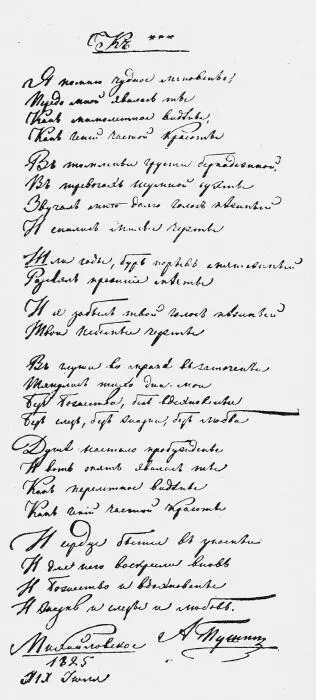 Къ ***
Я помню чудное мгновенье;
Передо мной явилась ты
Какъ мимолетное видѣнье,
Какъ геній чистой красоты
Въ томленьи грусти безнадежной
Въ тревогахъ шумной суеты
Звучалъ мнѣ долго голосъ нѣжный
И снились милые черты
Шли годы, бурь порывъ мятежный
Разсѣялъ прежнія мечты
И я забылъ твой голосъ нѣжный
Твои небесные черты
Въ глуши во мракѣ заточенья
Тянулись тихо дни мои
Безъ божества, безъ вдохновенья
Безъ слезъ, безъ жизни, безъ любви
Душѣ настало пробужденье
И вотъ опять явилась ты
Какъ мимолетное видѣнье
Какъ геній чистой красоты
И сердце бьется въ упоеньи
И для него воскресли вновь
И божество и вдохновенье
И жизнь и слезы и любовь.
Михайловское А Пушкин
1825
XIX Іюля